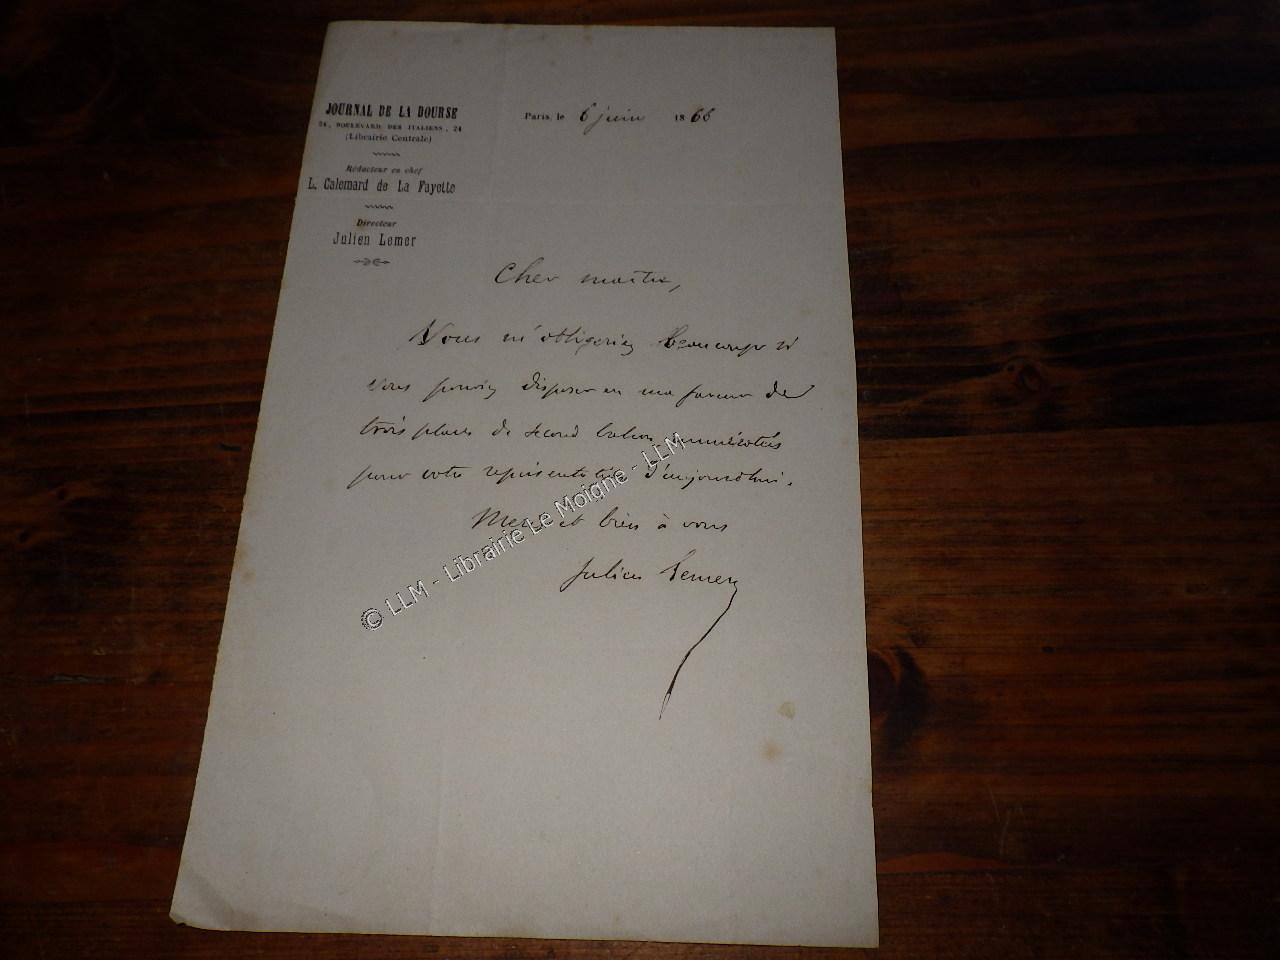 JOURNAL DE LA BOURSE
24, BOULEVARD DES ITALIENS, 24
(Librairie Centrale)
Rédacteur en chef
L. Calemard de La Fayette
Directeur
Julien Lemer
Paris, le 6 juin 1866
Cher maître,
Vous m'obligeriez beaucoup si
vous pouviez disposer en ma faveur de
trois places de second balcon numérotées
pour votre représentation d'aujourd'hui.
Merci et bien à vous
Julien Lemer
© LLM - Librairie Le Moigne - LLM